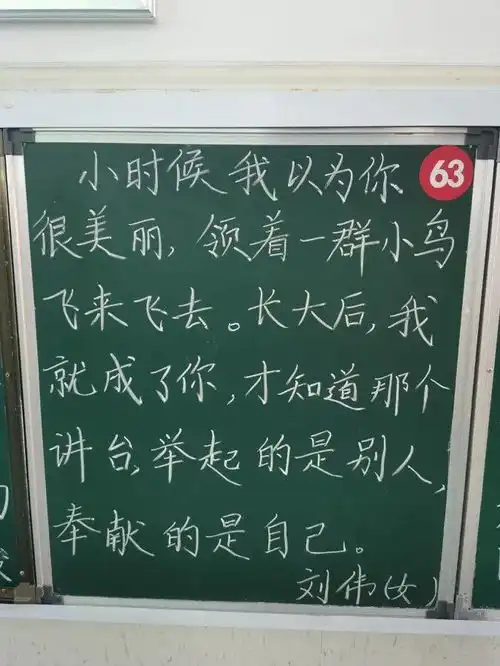 小时候我以为你
63
很美丽,领着一群小鸟
飞来飞去。长大后,我
就成了你,才知道那个
讲台,举起的是别人,
奉献的是自己。
刘伟(女)